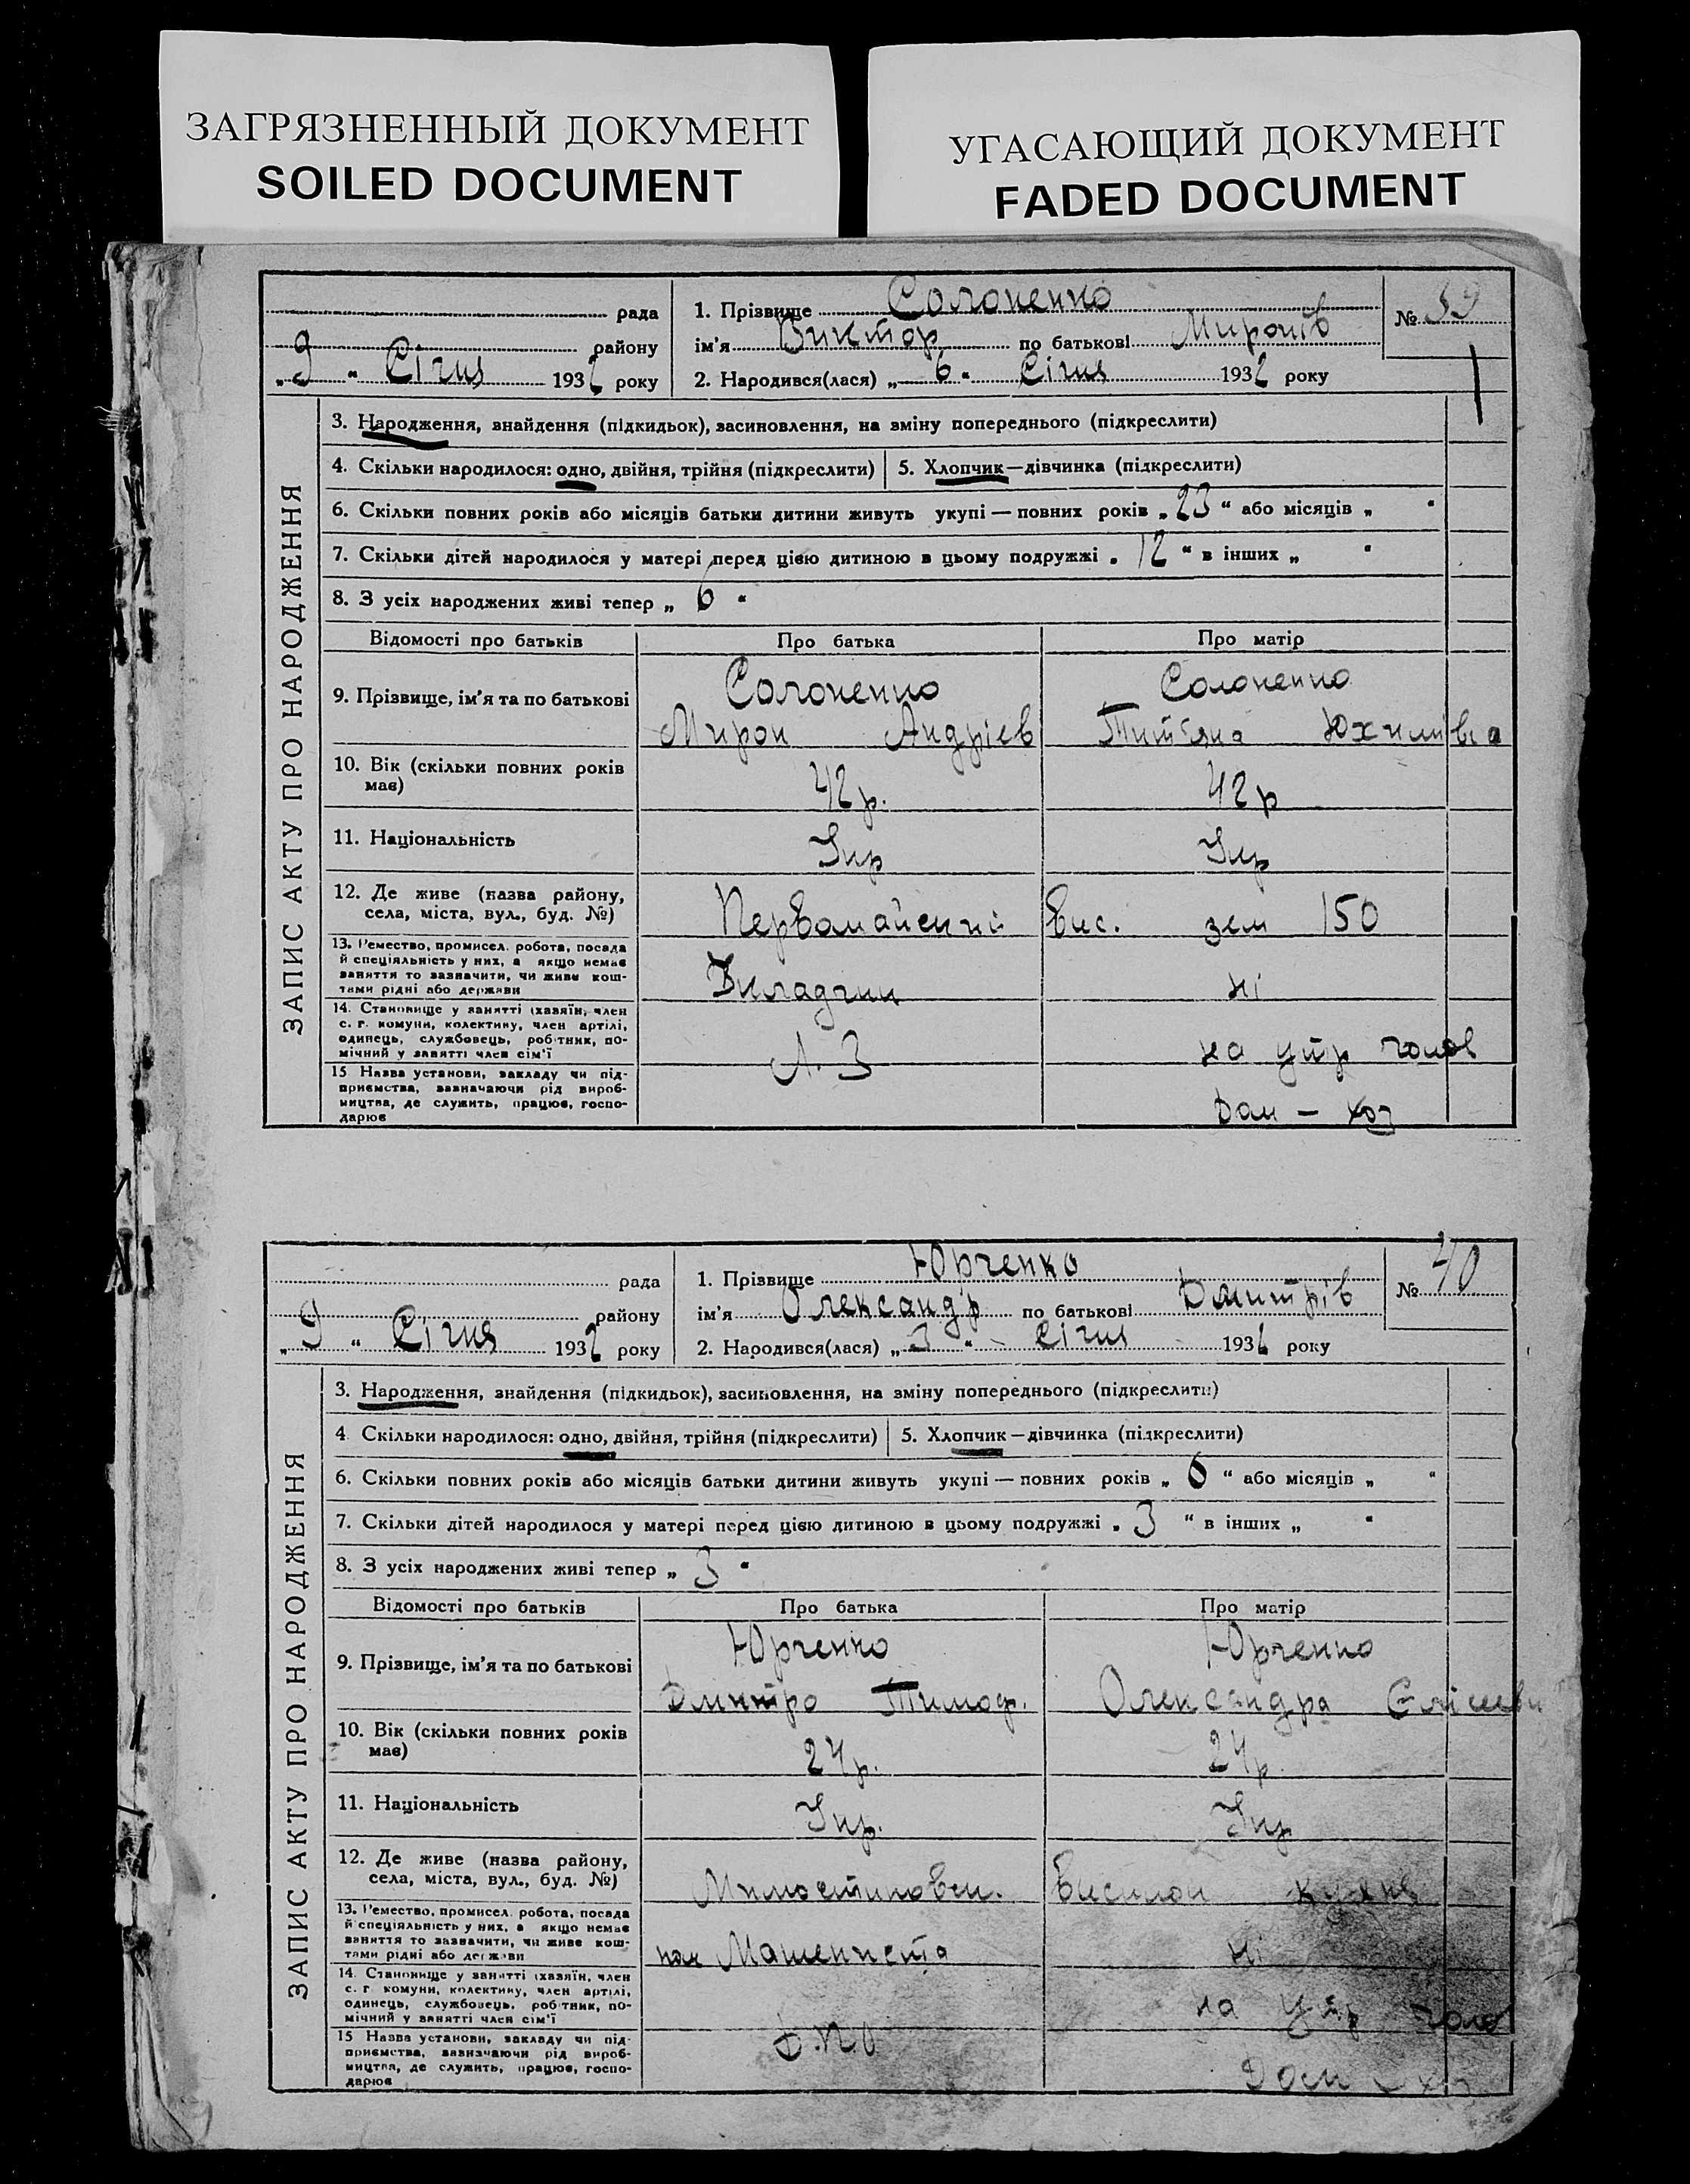 ЗАГРЯЗНЕННЫЙ ДОКУМЕНТ
SOILED DOCUMENT
УГАСАЮЩИЙ ДОКУМЕНТ
FADED DOCUMENT
ЗАПИС АКТУ ПРО НАРОДЖЕННЯ
рада
району
„9“ Січня 1932 року
1. Прізвище Солоненко
ім'я Виктор по батькові Миронів
2. Народився(лася) „6“ Січня 1932 року
№ 39
3. Народження, знайдення (підкидьок), засиновлення, на зміну попереднього (підкреслити)
4. Скільки народилося: одно, двійня, трійня (підкреслити)
5. Хлопчик—дівчинка (підкреслити)
6. Скільки повних років або місяців батьки дитини живуть укупі — повних років „23“ або місяців „ “
7. Скільки дітей народилося у матері перед цією дитиною в цьому подружжі „12“ в інших „ “
8. З усіх народжених живі тепер „6“
Відомості про батьків Про батька Про матір
9. Прізвище, ім'я та по батькові
Солоненко Солоненко
Мирон Андріев Тит'яна Юхимівна
10. Вік (скільки повних років має)
42 р. 42 р
11. Національність
Укр Укр
12. Де живе (назва району, села, міста, вул., буд. №)
Первомайский вис. зем 150
13. Ремество, промисел, робота, посада й спеціяльність у них, а якщо немає заняття то зазначити, чи живе коштами рідні або держави
Викладчик ні
14. Становище у занятті (хазяїн, член с. г. комуни, колективу, член артілі, одинець, службовець, робітник, помічний у занятті член сім'ї
на утр голов
15 Назва установи, закладу чи підприємства, зазначаючи рід виробництва, де служить, працює, господарює
Л. З
Дом – хоз
ЗАПИС АКТУ ПРО НАРОДЖЕННЯ
рада
району
„9“ Січня 1932 року
1. Прізвище Юрченко
ім'я Олександр по батькові Дмитрів
2. Народився(лася) „3“ Січня 1932 року
№ 40
3. Народження, знайдення (підкидьок), засиновлення, на зміну попереднього (підкреслити)
4 Скільки народилося: одно, двійня, трійня (підкреслити)
5. Хлопчик—дівчинка (підкреслити)
6. Скільки повних років або місяців батьки дитини живуть укупі — повних років „6“ або місяців „ “
7. Скільки дітей народилося у матері перед цією дитиною в цьому подружжі „3“ в інших „ “
8. З усіх народжених живі тепер „3“
Відомості про батьків Про батька Про матір
9. Прізвище, ім'я та по батькові
Юрченко Юрченко
Дмитро Тимоф. Олександра
10. Вік (скільки повних років має)
24 р. 24 р.
11. Національність
Укр. Укр
12. Де живе (назва району, села, міста, вул., буд. №)
13. Ремество, промисел, робота, посада й спеціяльність у них, а якщо немає заняття то зазначити, чи живе коштами рідні або держави
пом Машениста ні
14. Становище у занятті (хазяїн, член с. г. комуни, колективу, член артілі, одинець, службовець, робітник, помічний у занятті член сім'ї
на утр голов
15 Назва установи, закладу чи підприємства, зазначаючи рід виробництва, де служить, працює, господарює
Дом – хоз